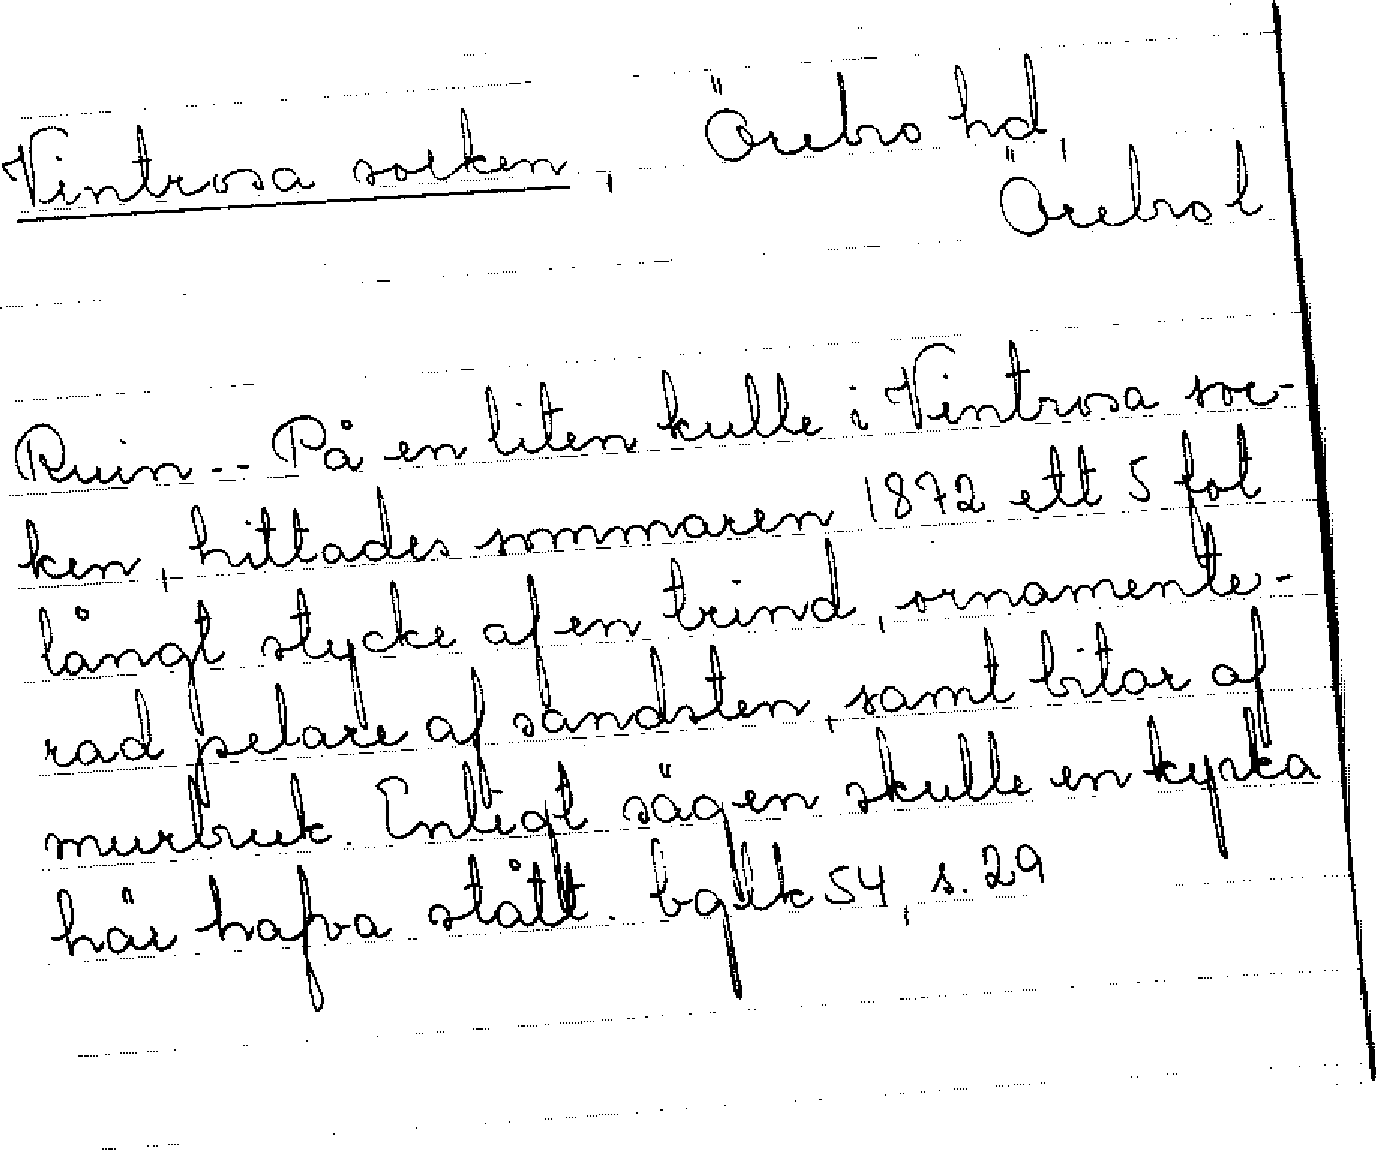 Vintrosa socken, Örebro hd,
Örebro l
Ruin -- På en liten kulle i Vintrosa soc-
ken, hittades sommaren 1872 ett 5 fot
långt stycke af en trind, ornamente-
rad pelare af sandsten, samt bitar af
murbruk. Enligt sägen skulle en kyrka
här hafva stått. 54, s. 29